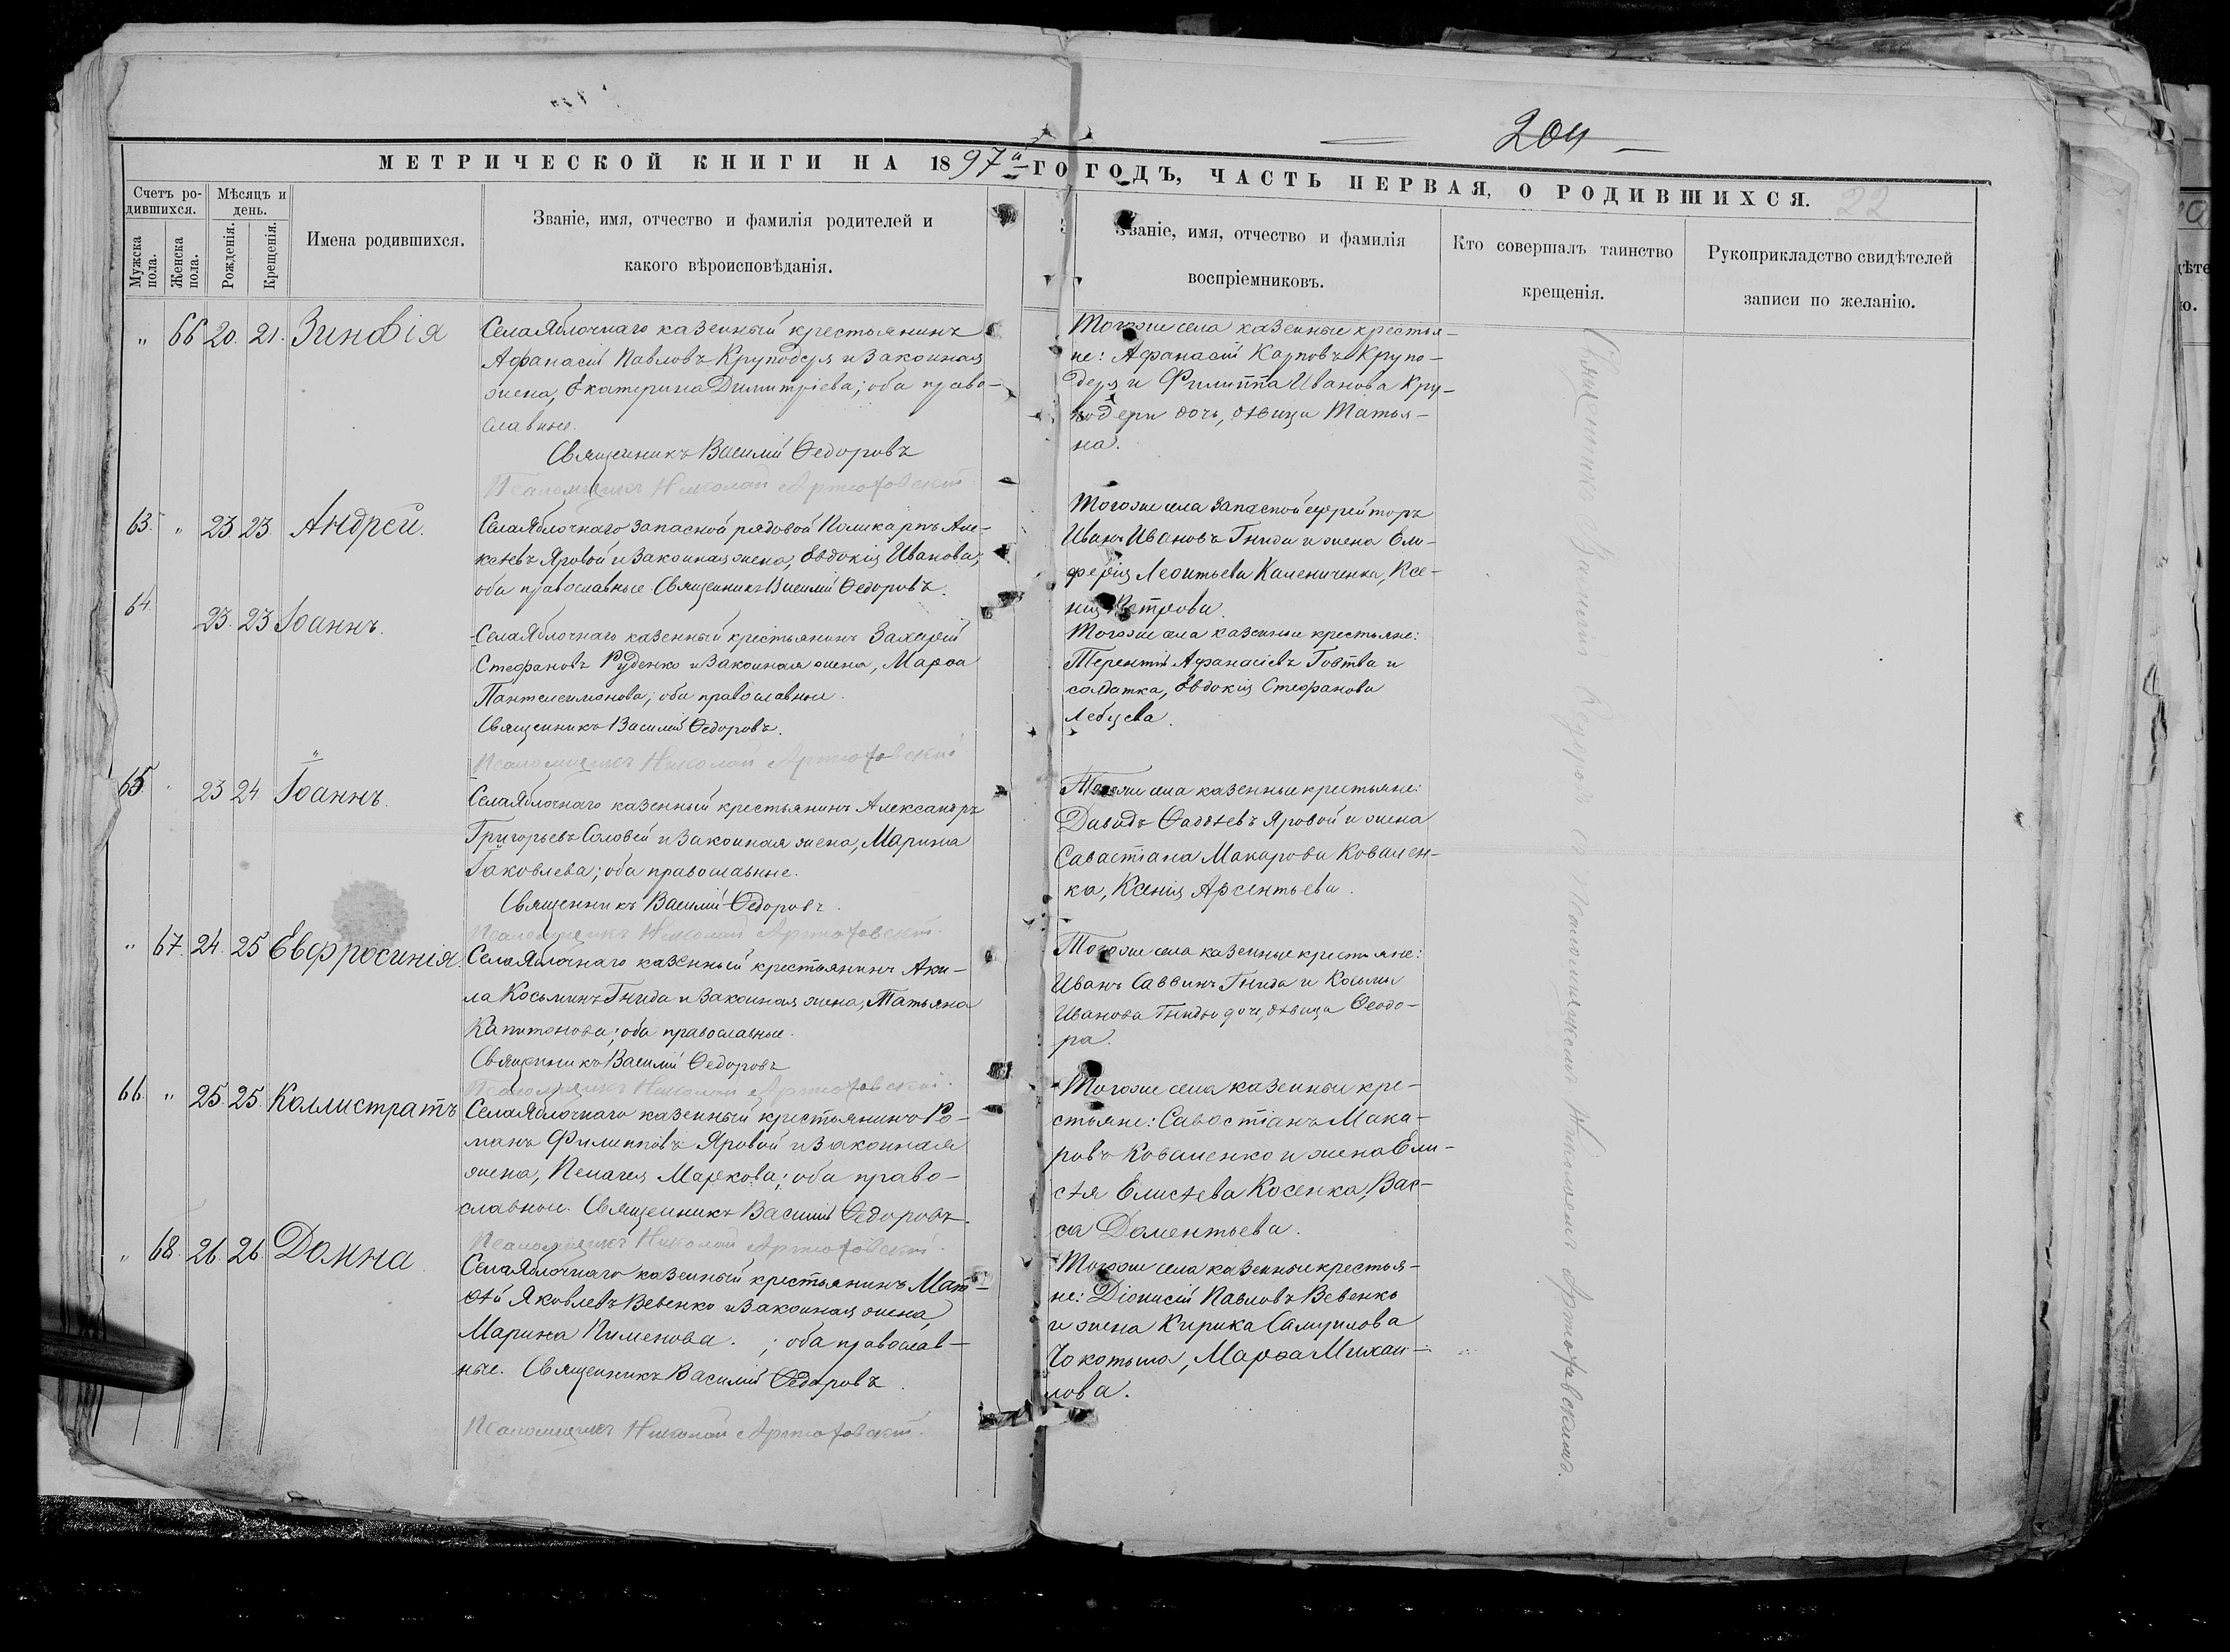 204
МЕТРИЧЕСКОЙ КНИГИ НА 1897й-ГО ГОДЪ, ЧАСТЬ ПЕРВАЯ, О РОДИВШИХСЯ.
22
Счетъ родившихся.
Мужска пола.
Женска пола.
Мѣсяцъ и день.
Рожденія.
Крещенія.
Имена родившихся.
Званіе, имя, отчество и фамилія родителей и
какого вѣроисповѣданія.
Званіе, имя, отчество и фамилія
воспріемниковъ.
Кто совершалъ таинство
крещенія.
Рукоприкладство свидѣтелей
записи по желанію.
" 66 20. 21. Зиновія
Села Яблочнаго казенный крестьянинъ
Афанасій Павловъ Круподеря и законная
жена, Екатерина Димитріева; оба право-
славные.
Священникъ Василій Ѳедоровъ
Псаломщикъ Николай Артюховскій
Тогоже села казенные крестья-
не: Афанасій Карповъ Крупо-
деря и Филиппа Иванова Кру-
подери дочь, дѣвица Татья-
на.
63. " 23. 23. Андрей.
Села Яблочнаго запасной рядовой Поликарпъ Але-
ксѣевъ Яровой и законная жена, Евдокія Иванова;
оба православные Священникъ Василій Ѳедоровъ.
Тогоже села запасной ефрейторъ
Иванъ Ивановъ Гнида и жена Еле-
ферія Леонтьева Калениченка, Ксе-
нія Петрова.
64. 23. 23 Іоаннъ.
Села Яблочнаго казенный крестьянинъ Захарій
Стефановъ Руденко и законная жена, Марѳа
Пантелеимонова; оба православные.
Священникъ Василій Ѳедоровъ.
Псаломщикъ Николай Артюховскій
Тогоже села казенные крестьяне:
Терентій Афанасіевъ Говтва и
солдатка, Евдокія Стефанова
Лебцева.
65. " 23 24. Іоаннъ.
Села Яблочнаго казенный крестьянинъ Александръ
Григорьевъ Соловей и законная жена, Марина
Іаковлева; оба православные.
Священникъ Василій Ѳедоровъ.
Псаломщикъ Николай Артюховскій.
Тогоже села казенные крестьяне:
Давидъ Ѳаддѣевъ Яровой и жена
Савастіана Макарова Ковален-
ка, Ксенія Арсентьева.
" 67. 24. 25 Евфросинія.
Села Яблочнаго казенный крестьянинъ Аки-
ла Косьминъ Гнида и законная жена, Татьяна
Капитонова; оба православные.
Священникъ Василій Ѳедоровъ
Псаломщикъ Николай Артюховскій.
Тогоже села казенные крестьяне:
Иванъ Саввинъ Гнида и Косьмы
Иванова Гниды дочь, дѣвица Ѳеодо-
ра.
66. " 25. 25. Каллистратъ
Села Яблочнаго казенный крестьянинъ Ро-
манъ Филипповъ Яровой и законная
жена, Пелагея Маркова; оба право-
славные. Священникъ Василій Ѳедоровъ.
Псаломщикъ Николай Артюховскій.
Тогоже села казенные кре-
стьяне: Савостіанъ Мака-
ровъ Коваленко и жена Ели-
сѣя Елисѣева Косенка, Вас-
са Доментьева.
" 68. 26. 26. Домна
Села Яблочнаго казенный крестьянинъ Мат-
ѳѣй Яковлевъ Вевенко и законная жена
Марина Пименова. ; оба православ-
ные. Священникъ Василій Ѳедоровъ.
Псаломщикъ Николай Артюховскій.
Тогоже села казенные крестья-
не: Діонисій Павловъ Вевенко
и жена Кирика Самуилова
Чокотыла, Марѳа Михаи-
лова.
Священникъ Василій Ѳедоровъ съ Псаломщикомъ Николаемъ Артюховскимъ.